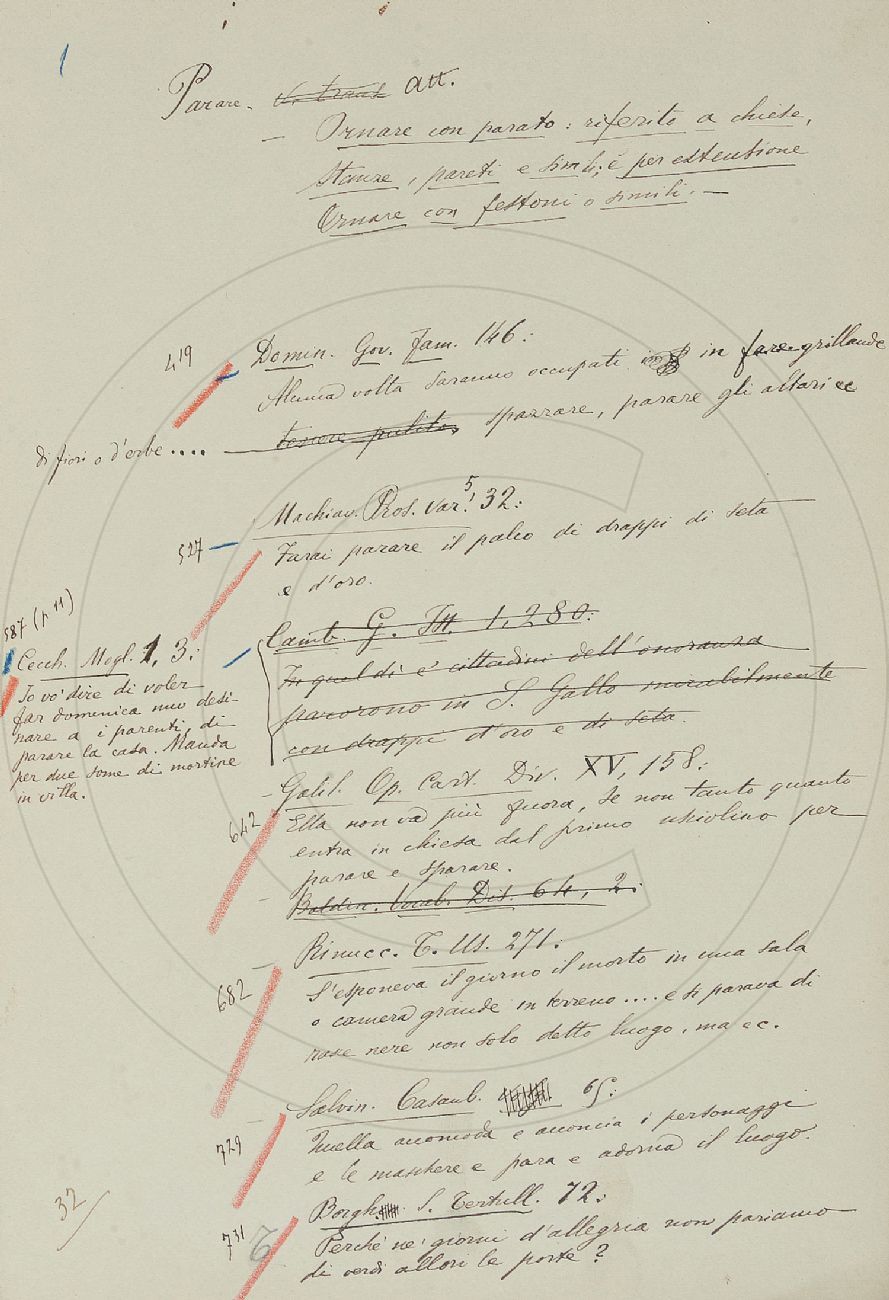 1
Parare. V. trans Att.
— Ornare con parato: riferito a chiese,
stanze, pareti e simili; e per estensione
Ornare con festoni o simili. —
419
Domin. Gov. Fam. 146:
Alcuna volta saranno occupati in fare grillande
di fiori o d'erbe .... tenere pulito, spazzare, parare gli altari ec
527 — Machiav. Pros. var. 5! 32:
Farai parare il palco di drappi di seta
e d'oro.
587 (p 11)
Cecch. Mogl. 1, 3:
Io vo' dire di voler
far domenica un desi-
nare a i parenti, di
parare la casa. Manda
per due some di mortine
in villa.
Camb. G. Ist. 1, 280:
In quel dì e' cittadini dell'onoranza
pararono in S. Gallo mirabilmente
con drappi d'oro e di seta.
642
— Galil. Op. Cart. Div. XV, 158:
Ella non va più fuora, se non tanto quanto
entra in chiesa dal primo usciolino per
parare e sparare.
— Baldin. Vocab. Dis. 64, 2:
682
— Rinucc. C. Us. 271:
S'esponeva il giorno il morto in una sala
o camera grande in terreno .... e si parava di
rase nere non solo detto luogo, ma ec.
729
— Salvin. Casaub. 65:
Quella accomoda e acconcia i personaggi
e le maschere e para e adorna il luogo.
731
Borgh. S. Tertull. 72:
Perchè ne' giorni d'allegria non pariamo
di verdi allori le porte?
32